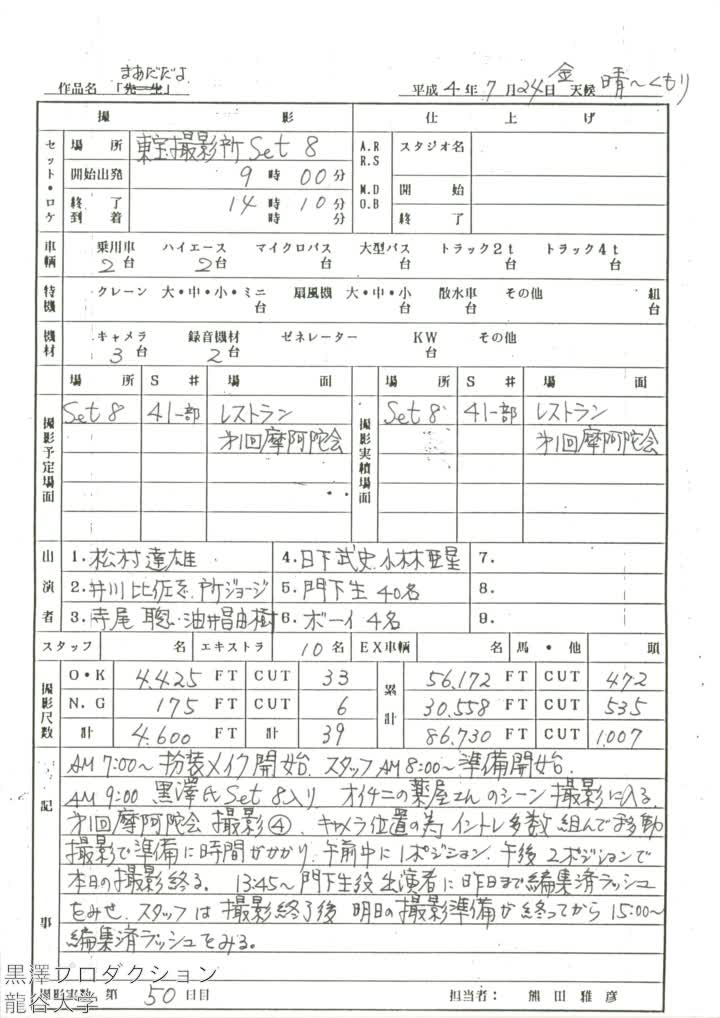 まあだだよ
作品名 「先生」 平成 4 年 7 月 24 日 金 天候 晴～くもり
撮影 仕上げ
セット・ロケ 場所 東宝撮影所 Set 8 A.R R.S スタジオ名
開始出発 9 時 00 分 M.D O.B 開始
終了 14 時 10 分 終了
到着 時 分
車輌 乗用車 2台 ハイエース 2台 マイクロバス 台 大型バス 台 トラック2t 台 トラック4t 台
特機 クレーン 大・中・小・ミニ 台 扇風機 大・中・小 台 散水車 台 その他 組 台
機材 キャメラ 3台 録音機材 2台 ゼネレーター KW 台 その他
場所 S# 場面 場所 S# 場面
撮影予定場面 Set 8 41一部 レストラン 撮影実績場面 Set 8 41一部 レストラン
才1回摩阿陀会 才1回摩阿陀会
出演者 1.松村達雄 4.日下武史.小林亜星 7.
2.井川比佐志.所ジョージ 5.門下生 40名 8.
3.寺尾聰・油井昌由樹 6.ボーイ 4名 9.
スタッフ 名 エキストラ 10名 EX車輌 名 馬・他 頭
撮影尺数 O・K 4.425 FT CUT 33 累計 56.172 FT CUT 472
N.G 175 FT CUT 6 30.558 FT CUT 535
計 4.600 FT 計 39 86.730 FT CUT 1.007
記事
AM 7:00～ 扮装メイク開始. スタッフ AM 8:00～ 準備開始.
AM 9:00 黒澤氏 Set 8入り オイチニの薬屋さんのシーン撮影に入る.
才1回摩阿陀会 撮影④. キャメラ位置の為 イントレ多数 組んで移動
撮影で準備に時間がかかり. 午前中に1ポジション. 午後2ポジションで
本日の撮影終る. 13:45～ 門下生役出演者に昨日まで編集済ラッシュ
をみせ. スタッフは撮影終了後 明日の撮影準備が終ってから 15:00～
編集済ラッシュをみる。
撮影実数 第 50 日目 担当者: 熊田雅彦
黒澤プロダクション
龍谷大学